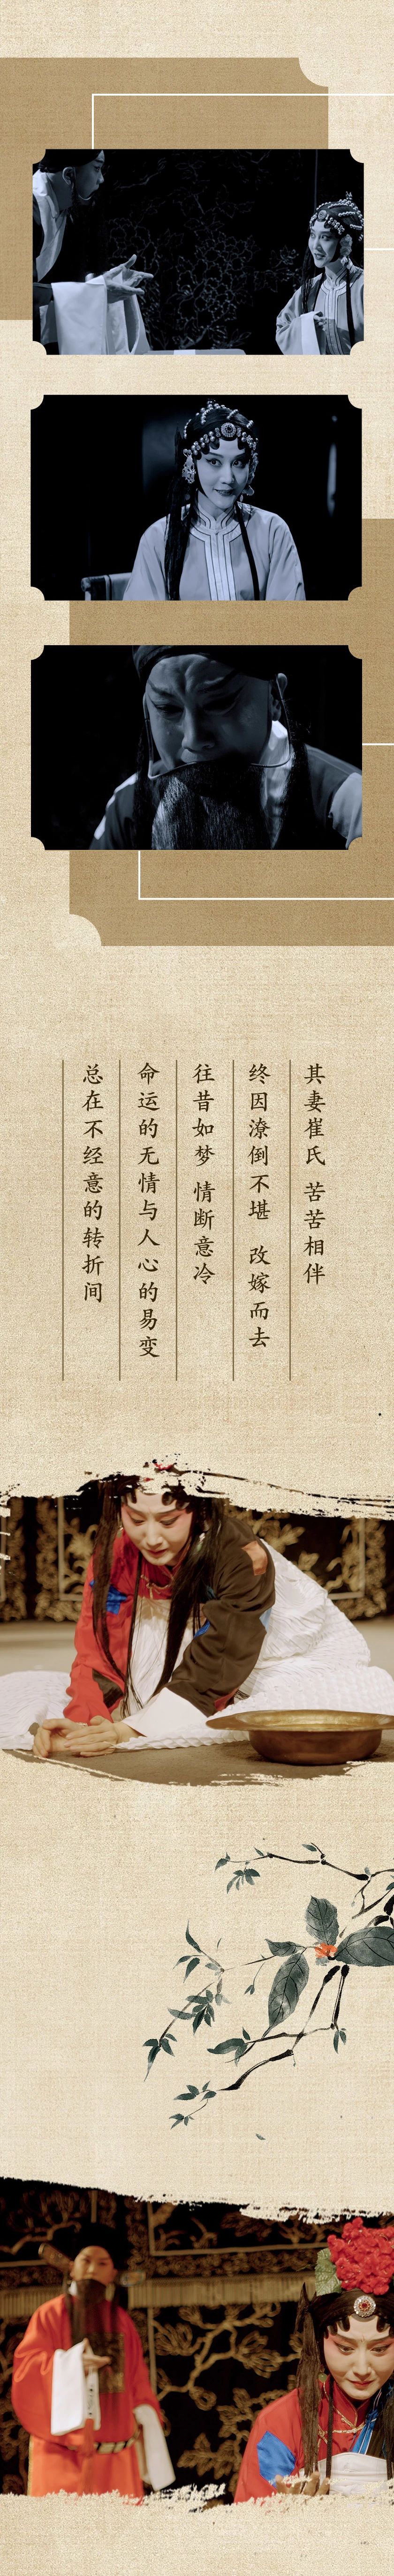 其妻崔氏 苦苦相伴
终因潦倒不堪 改嫁而去
往昔如梦 情断意冷
命运的无情与人心的易变
总在不经意的转折间